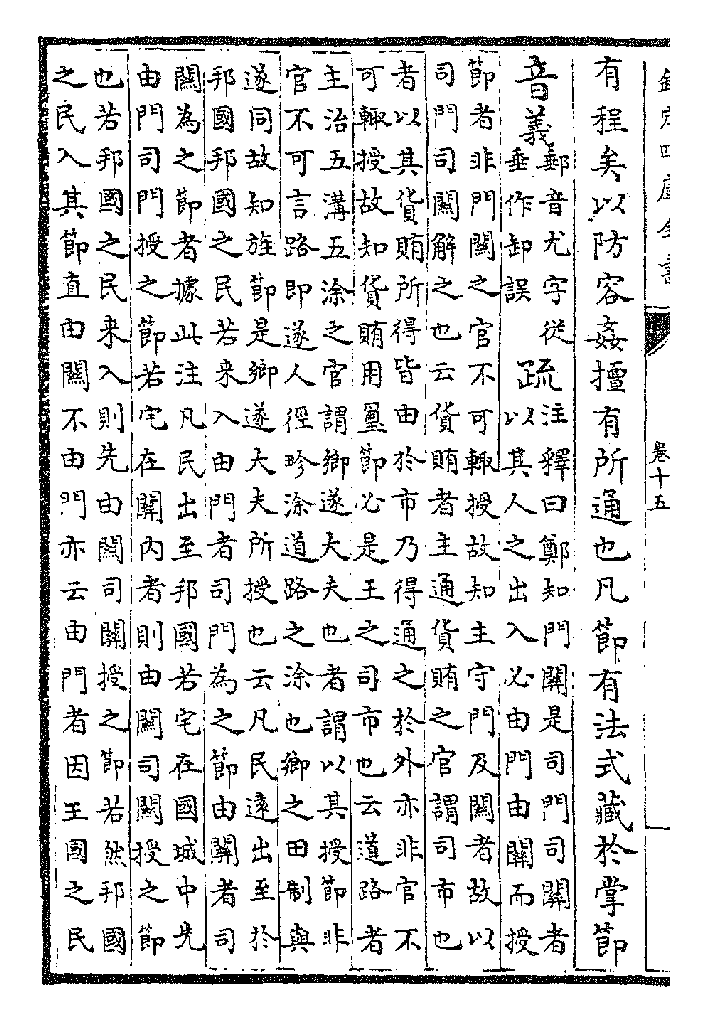 欽定四庫全書
卷十五
有程矣以防容姦擅有所通也凡節有法式藏於掌節
音義
郵音尤字從
垂作卸誤
疏
注釋曰鄭知門關是司門司關者
以其人之出入必由門由關而授
節者非門關之官不可輙授故知主守門及關者故以
司門司關解之也云貨賄者主通貨賄之官謂司市也
者以其貨賄所得皆由於市乃得通之於外亦非官不
可輙授故知貨賄用璽節必是王之司市也云道路者
主治五溝五涂之官謂鄉遂大夫也者謂以其授節非
官不可言路即遂人徑畛涂道路之涂也鄉之田制與
遂同故知旌節是鄉遂大夫所授也云凡民遠出至於
邦國邦國之民若來入由門者司門為之節由關者司
關為之節者據此注凡民出至邦國若宅在國城中先
由門司門授之節若宅在關內者則由關司關授之節
也若邦國之民來入則先由關司關授之節若然邦國
之民入其節直由關不由門亦云由門者因王國之民